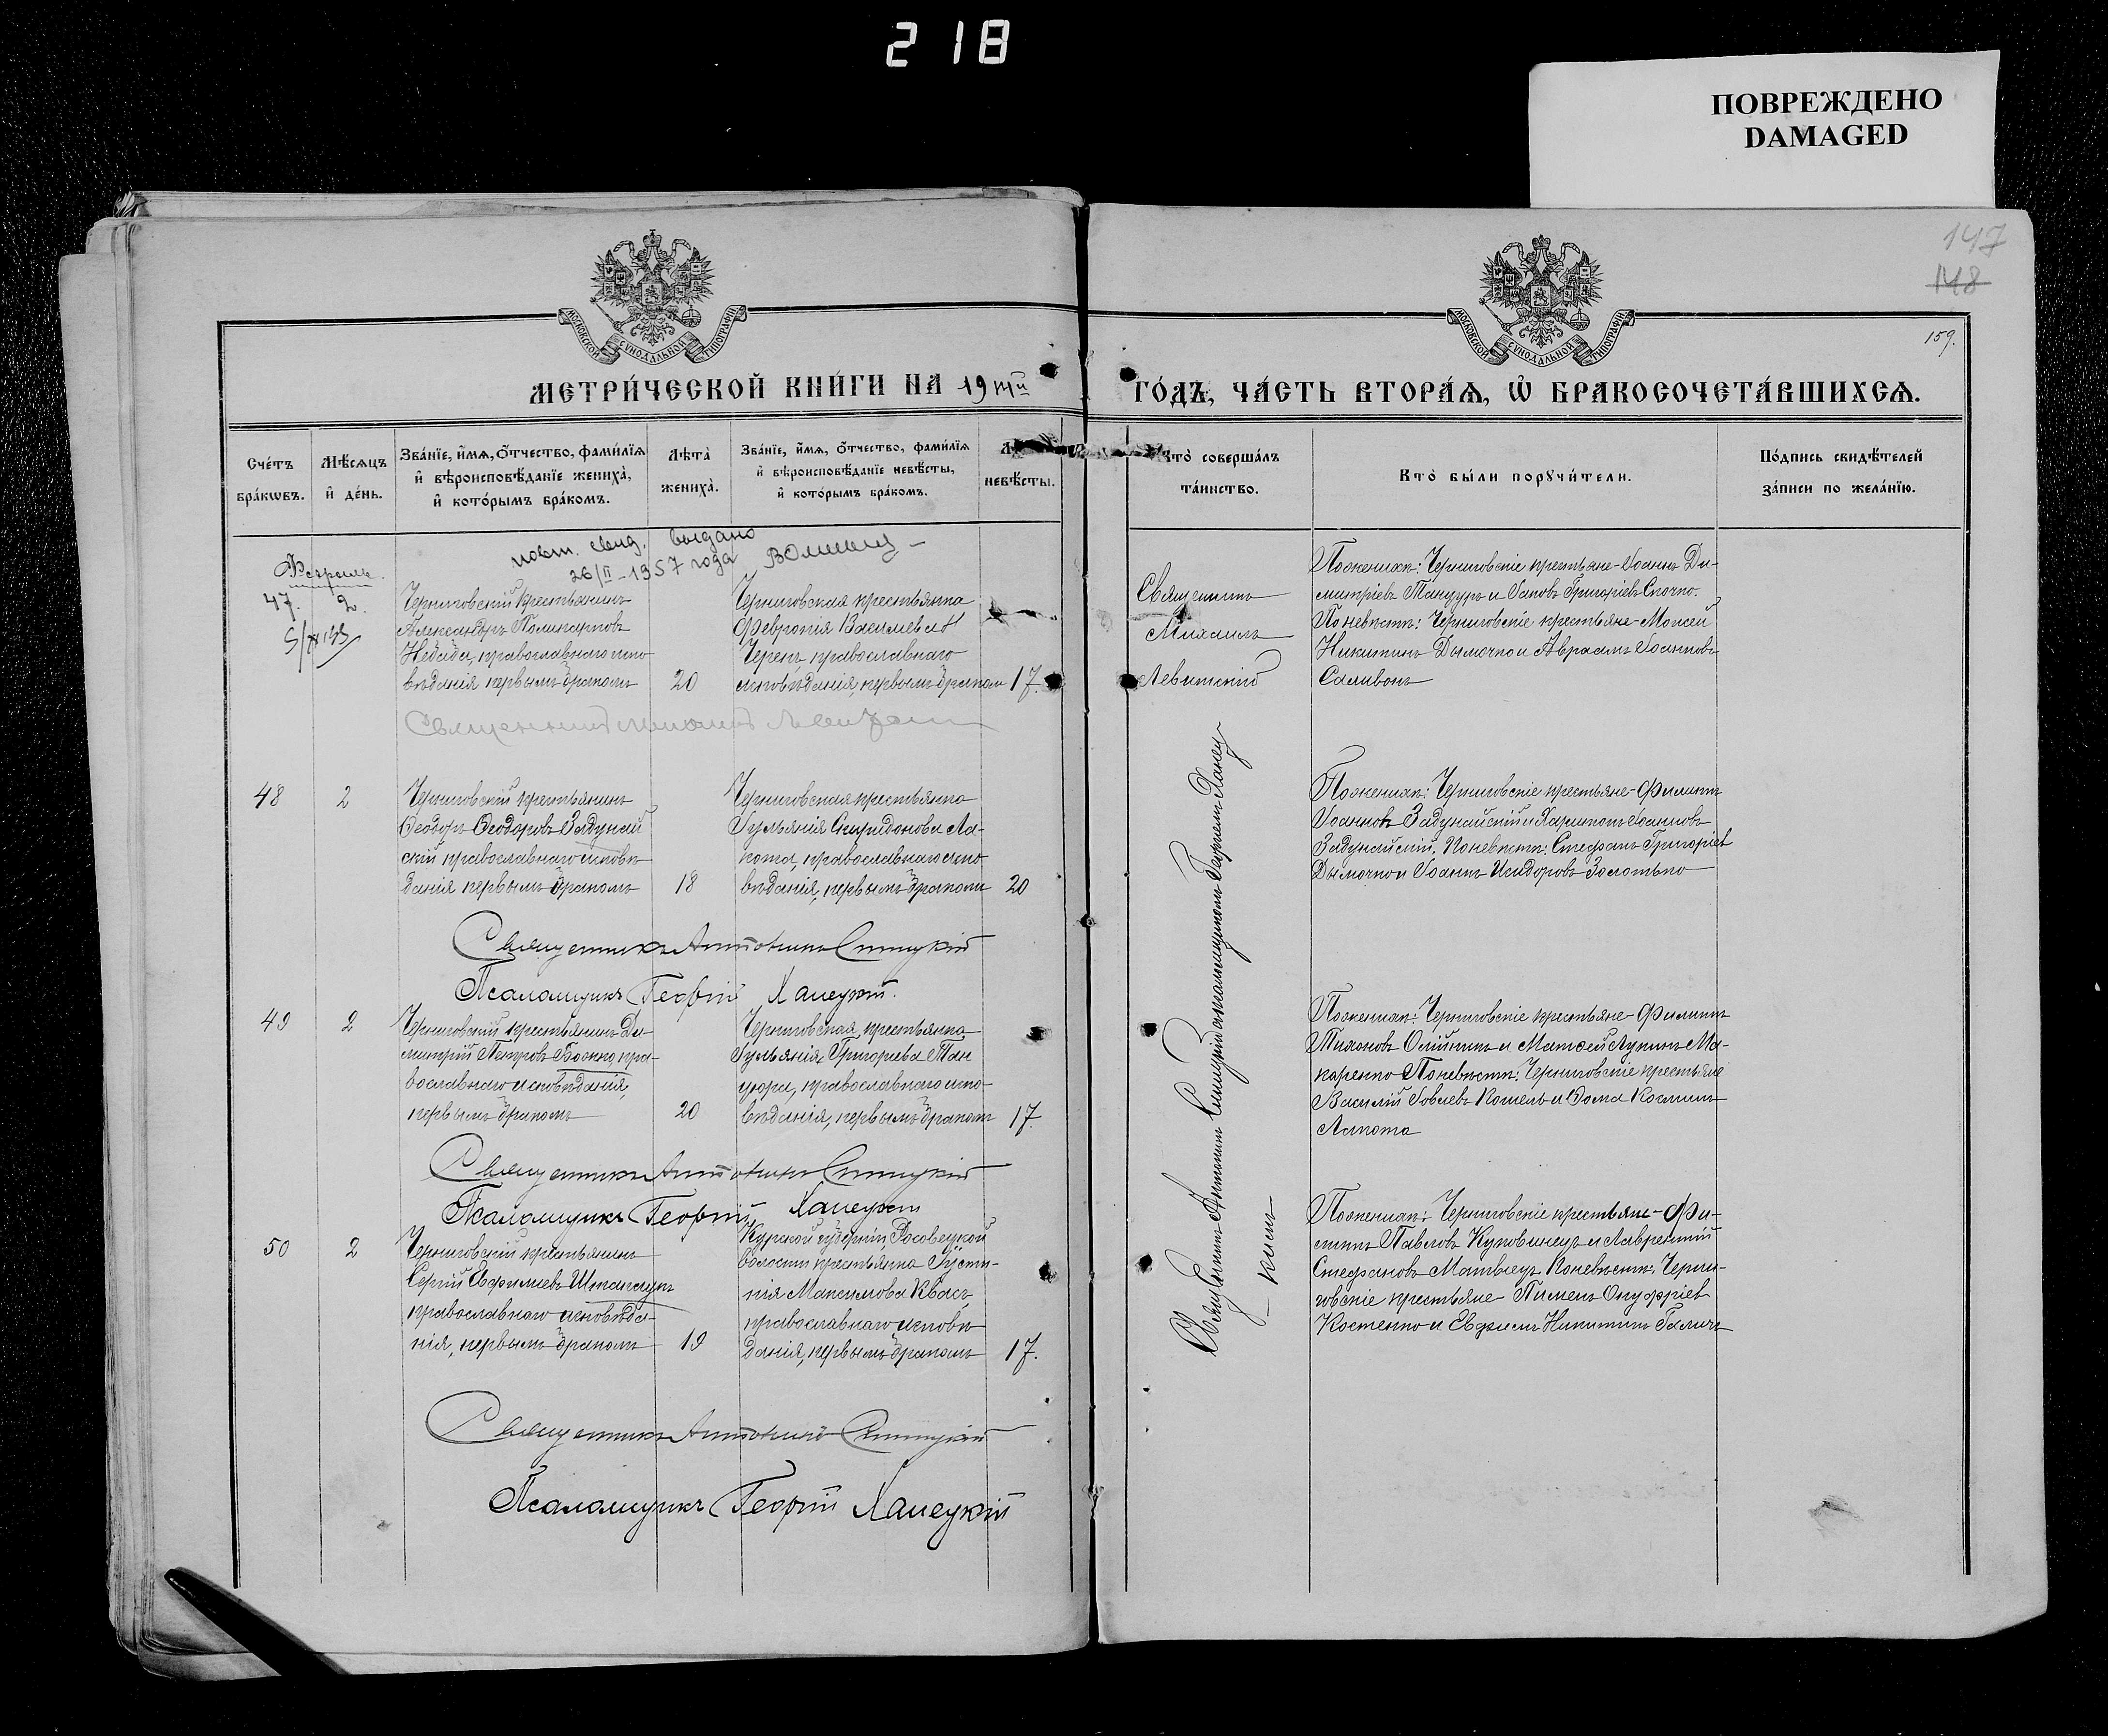 218
ПОВРЕЖДЕНО
DAMAGED
147
148
159.
МОСКОВСКОЙ СѴНОДАЛЬНОЙ ТИПОГРАФІИ
МОСКОВСКОЙ СѴНОДАЛЬНОЙ ТИПОГРАФІИ
МЕТРИ́ЧЕСКОЙ КНИ́ГИ НА 19
ГО́ДЪ, ЧА́СТЬ ВТОРА́Ѧ, Ѡ҆ БРАКОСОЧЕТА́ВШИХСѦ.
Сче́тъ бра́кѡвъ.
Мѣ́сѧцъ и҆ де́нь.
Зва́нїе, и҆́мѧ, ѻ҆́тчество, фами́лїѧ
и҆ вѣроисповѣ́данїе жениха̀,
и҆ кото́рымъ бра́комъ.
Лѣ́та̀ жениха̀.
Зва́нїе, и҆́мѧ, ѻ҆́тчество, фами́лїѧ
и҆ вѣроисповѣ́данїе невѣ́сты,
и҆ кото́рымъ бра́комъ.
невѣ́сты.
Кто̀ соверша́лъ
та́инство.
Кто̀ бы́ли порꙋчи́тели.
По́дпись свидѣ́телей
за́писи по жела́нїю.
повт. свид. выдано
26/II-1957 года
Февраль.
47. 2.
Черниговскій крестьянинъ
Александръ Поликарповъ
православнаго испо-
вѣданія первымъ бракомъ
20
Черниговская крестьянка
Февронія Васильева
Черепъ, православнаго
исповѣданія, первымъ бракомъ
17.
Священникъ
Михаилъ
Левитскій
По женихѣ: Черниговскіе крестьяне - Іоаннъ Ди-
митріевъ Танцуръ и Іаковъ Григоріевъ
По невѣстѣ: Черниговскіе крестьяне - Моисей
Никитинъ Дымочко и Авраамъ Іоанновъ
Саливонъ
48 2
Черниговскій крестьянинъ
Ѳеодоръ Ѳеодоровъ Задунай-
скій православнаго исповѣ-
данія первымъ бракомъ
18
Черниговская крестьянка
Іуліанія Спиридонова Ла-
кота, православнаго испо-
вѣданія, первымъ бракомъ
20
По женихѣ: Черниговскіе крестьяне - Филиппъ
Іоанновъ Задунайскій и Харитонъ Іоанновъ
Задунайскій. По невѣстѣ: Стефанъ Григоріевъ
Дымочко и Іоаннъ Исидоровъ Золотько
Священникъ Антоній Синицкій
Псаломщикъ Георгій Ханецкій.
49 2
Черниговскій крестьянинъ Ди-
митрій Петровъ Божко, пра-
вославнаго исповѣданія,
первымъ бракомъ
20
Черниговская крестьянка
Іуліанія Григорьева Тан-
цюра, православнаго испо-
вѣданія, первымъ бракомъ
17.
По женихѣ: Черниговскіе крестьяне - Филиппъ
Тихоновъ Олійникъ и Матѳей Лукинъ Ма-
каренко По невѣстѣ: Черниговскіе крестьяне
Василій Іовлевъ Кошель и Ѳома Космичъ
Лакота
Священникъ Антоній Синицкій
Псаломщикъ Георгій Ханецкій
50 2
Черниговскій крестьянинъ
Сергій Евфиміевъ
православнаго исповѣда-
нія, первымъ бракомъ
19
Курской губерніи
волости крестьянка Іусти-
нія Максимова Квасъ
православнаго исповѣ-
данія, первымъ бракомъ
17.
По женихѣ: Черниговскіе крестьяне - Фи-
липпъ Павловъ Куповинецъ и Лаврентій
Стефановъ Матвіецъ. По невѣстѣ: Черни-
говскіе крестьяне - Пименъ Онуфріевъ
Костенко и Евфимъ Никитинъ Галичъ
Священникъ Антоній Синицкій
Псаломщикъ Георгій Ханецкій